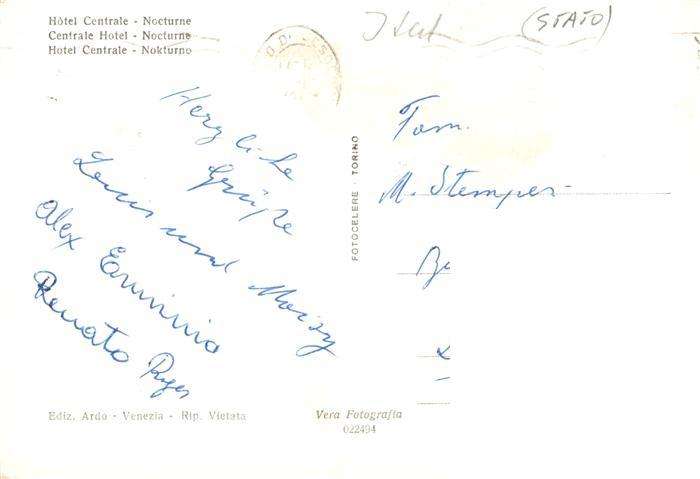 Hôtel Centrale - Nocturne
Centrale Hotel - Nocturne
Hotel Centrale - Nokturno
(STATO)
Herzliche
Grüße
und Moisy
Alex Erminio
Renato
Fam.
M. Stemper
FOTOCELERE - TORINO
Ediz. Ardo - Venezia - Rip. Vietata
Vera Fotografia
022494